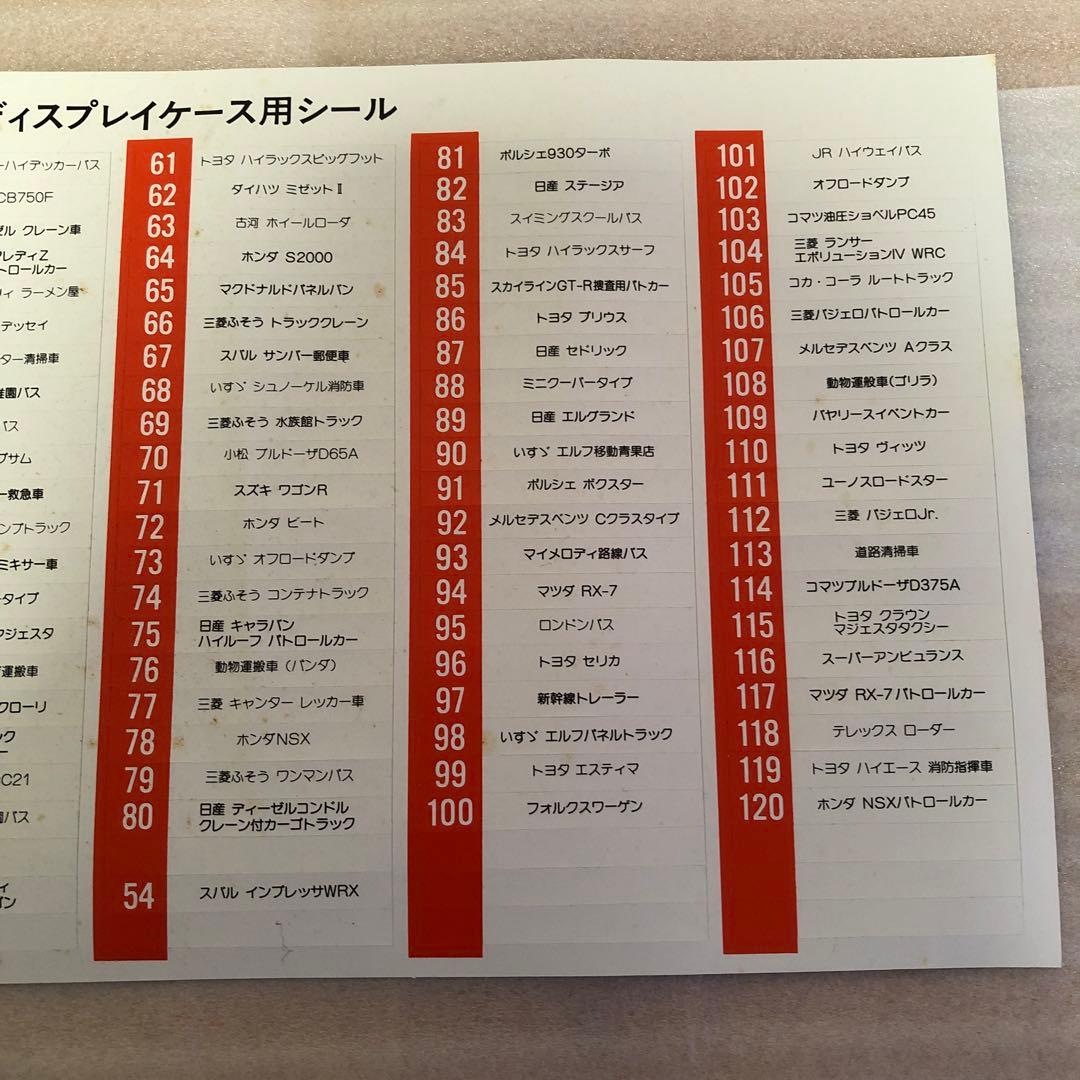 ディスプレイケース用シール
ーハイデッカーバス
CB750F
ゼル クレーン車
アレディZ
トロールカー
ィ ラーメン屋
デッセイ
ター清掃車
稚園バス
バス
プサム
ー救急車
ンプトラック
ミキサー車
ータイプ
マジェスタ
運搬車
クローリ
ック
ー
C21
園バス
ィ
イン
61 トヨタ ハイラックスビッグフット
62 ダイハツ ミゼットⅡ
63 古河 ホイールローダ
64 ホンダ S2000
65 マクドナルドパネルバン
66 三菱ふそう トラッククレーン
67 スバル サンバー郵便車
68 いすゞ シュノーケル消防車
69 三菱ふそう 水族館トラック
70 小松 ブルドーザD65A
71 スズキ ワゴンR
72 ホンダ ビート
73 いすゞ オフロードダンプ
74 三菱ふそう コンテナトラック
75 日産 キャラバン
ハイルーフ パトロールカー
76 動物運搬車(パンダ)
77 三菱 キャンター レッカー車
78 ホンダNSX
79 三菱ふそう ワンマンバス
80 日産 ディーゼルコンドル
クレーン付カーゴトラック
54 スバル インプレッサWRX
81 ポルシェ930ターボ
82 日産 ステージア
83 スイミングスクールバス
84 トヨタ ハイラックスサーフ
85 スカイラインGT-R捜査用パトカー
86 トヨタ プリウス
87 日産 セドリック
88 ミニクーパータイプ
89 日産 エルグランド
90 いすゞ エルフ移動青果店
91 ポルシェ ボクスター
92 メルセデスベンツ Cクラスタイプ
93 マイメロディ路線バス
94 マツダ RX-7
95 ロンドンバス
96 トヨタ セリカ
97 新幹線トレーラー
98 いすゞ エルフパネルトラック
99 トヨタ エスティマ
100 フォルクスワーゲン
101 JR ハイウェイバス
102 オフロードダンプ
103 コマツ油圧ショベルPC45
104 三菱 ランサー
エボリューションⅣ WRC
105 コカ・コーラ ルートトラック
106 三菱パジェロパトロールカー
107 メルセデスベンツ Aクラス
108 動物運般車(ゴリラ)
109 バヤリースイベントカー
110 トヨタ ヴィッツ
111 ユーノスロードスター
112 三菱 パジェロJr.
113 道路清掃車
114 コマツブルドーザD375A
115 トヨタ クラウン
マジェスタタクシー
116 スーパーアンビュランス
117 マツダ RX-7パトロールカー
118 テレックス ローダー
119 トヨタ ハイエース 消防指揮車
120 ホンダ NSXパトロールカー